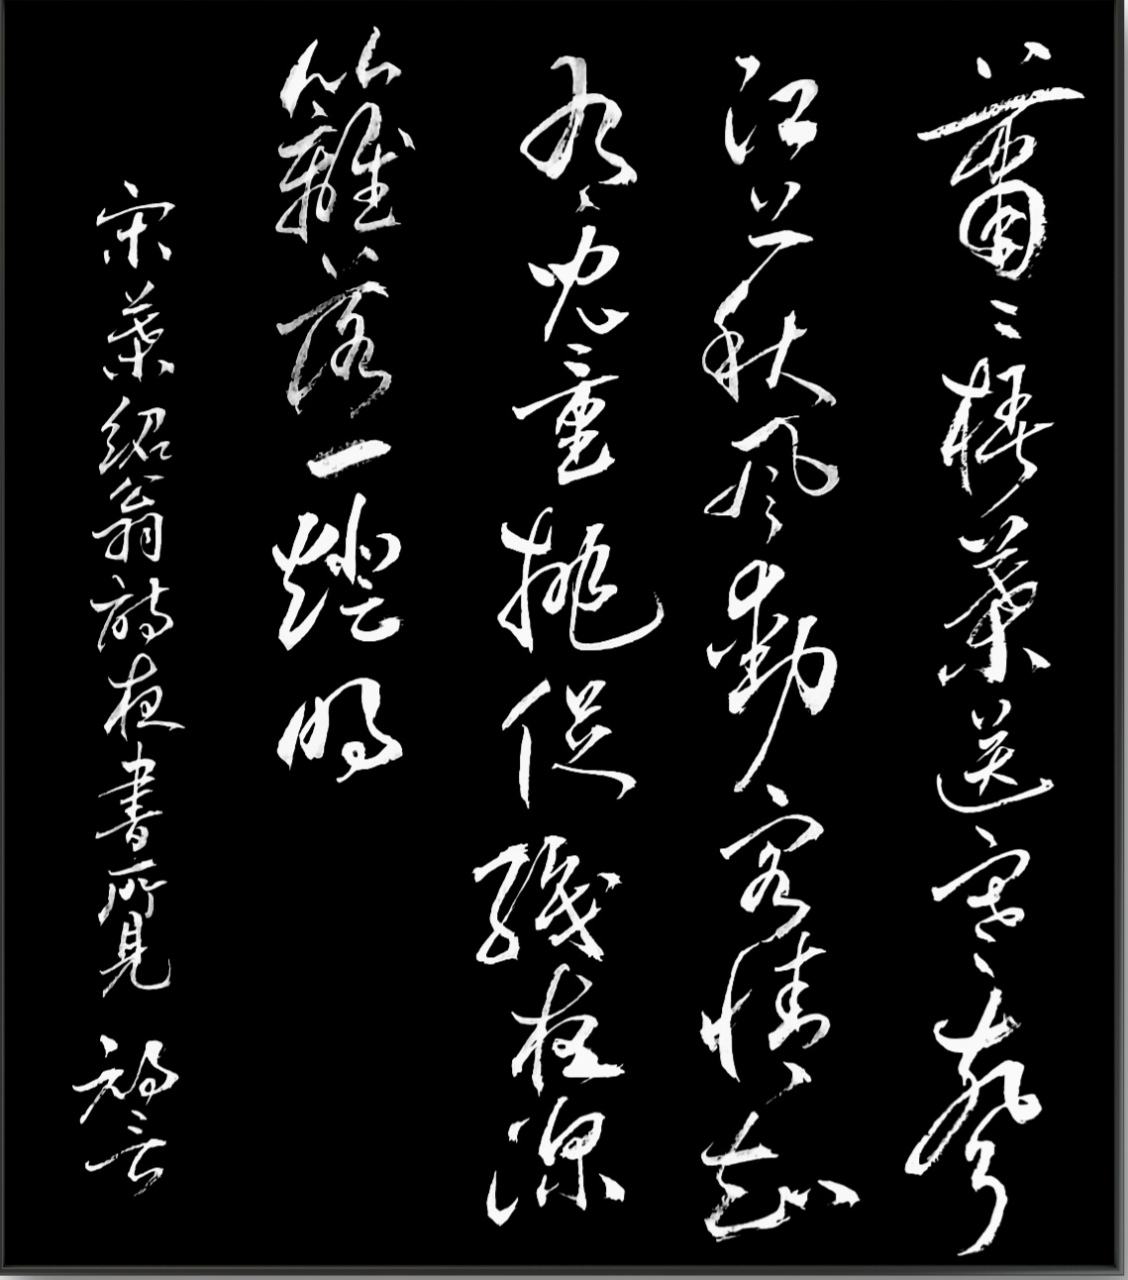 蕭〻梧葉送寒聲
江上秋風動客情知
有兒童挑促織夜深
籬落一燈明
宋葉紹翁詩夜書所見